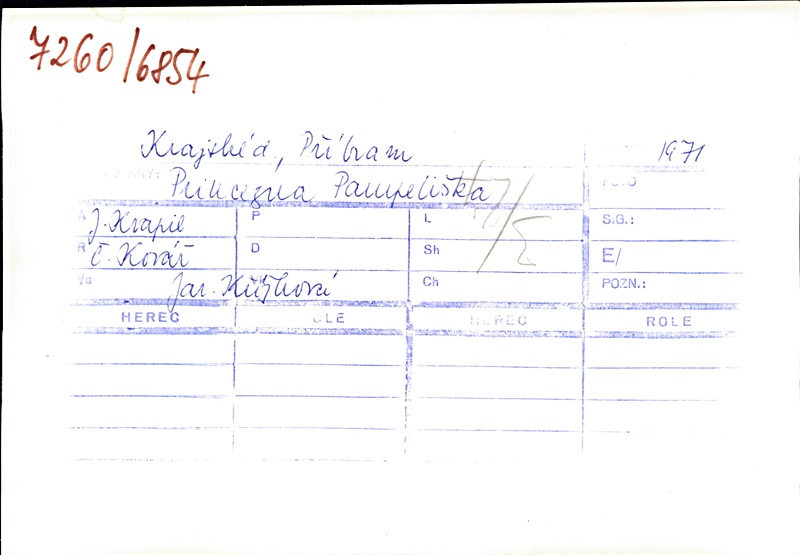 7260/6854
Krajské d., Příbram 1971
Princezna Pampeliška FOTO
A J. Kvapil P L S.G.:
R Č. Kovář D Sh E/
Jar. Ch POZN.:
HEREC OLE HEREC ROLE